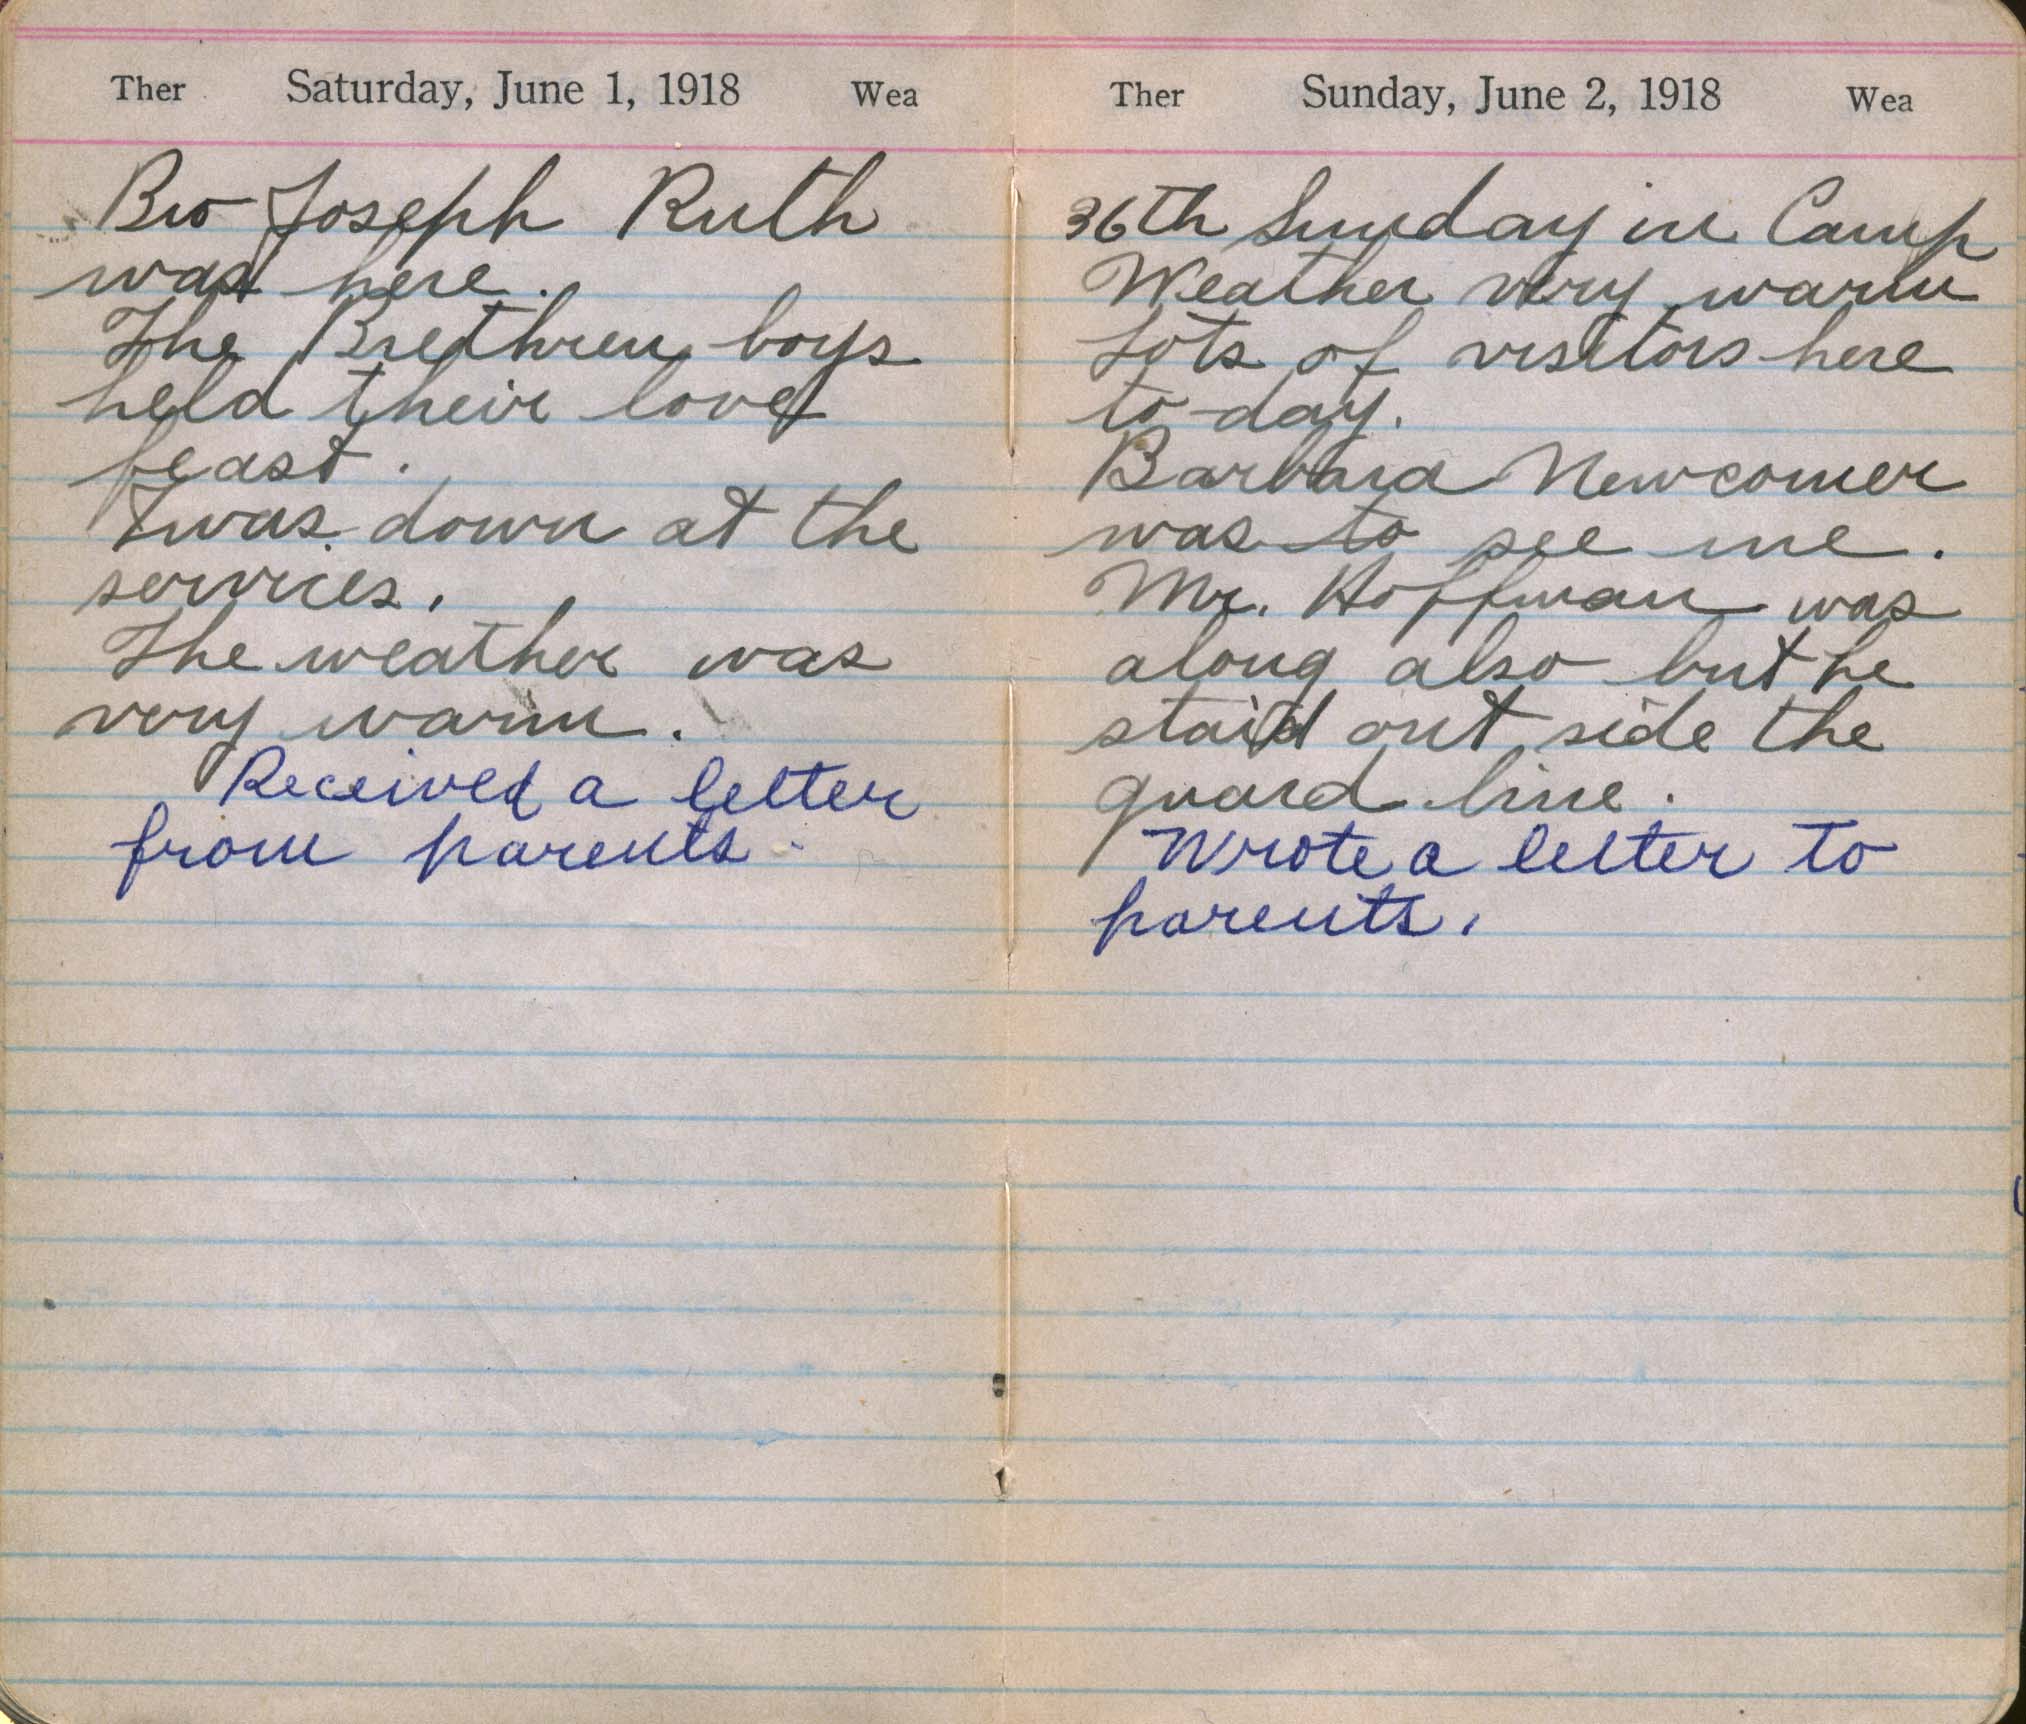 Ther Saturday, June 1, 1918 Wea
Bro Joseph Ruth
was here.
The Brethren boys
held their love
feast.
I was down at the
services.
The weather was
very warm.
Received a letter
from parents.
Ther Sunday, June 2, 1918 Wea
36th Sunday in Camp
Weather very warm
Lots of visitors here
to-day.
Barbara Newcomer
was to see me.
Mr. Hoffman was
along also but he
staid out side the
guard line.
Wrote a letter to
parents.